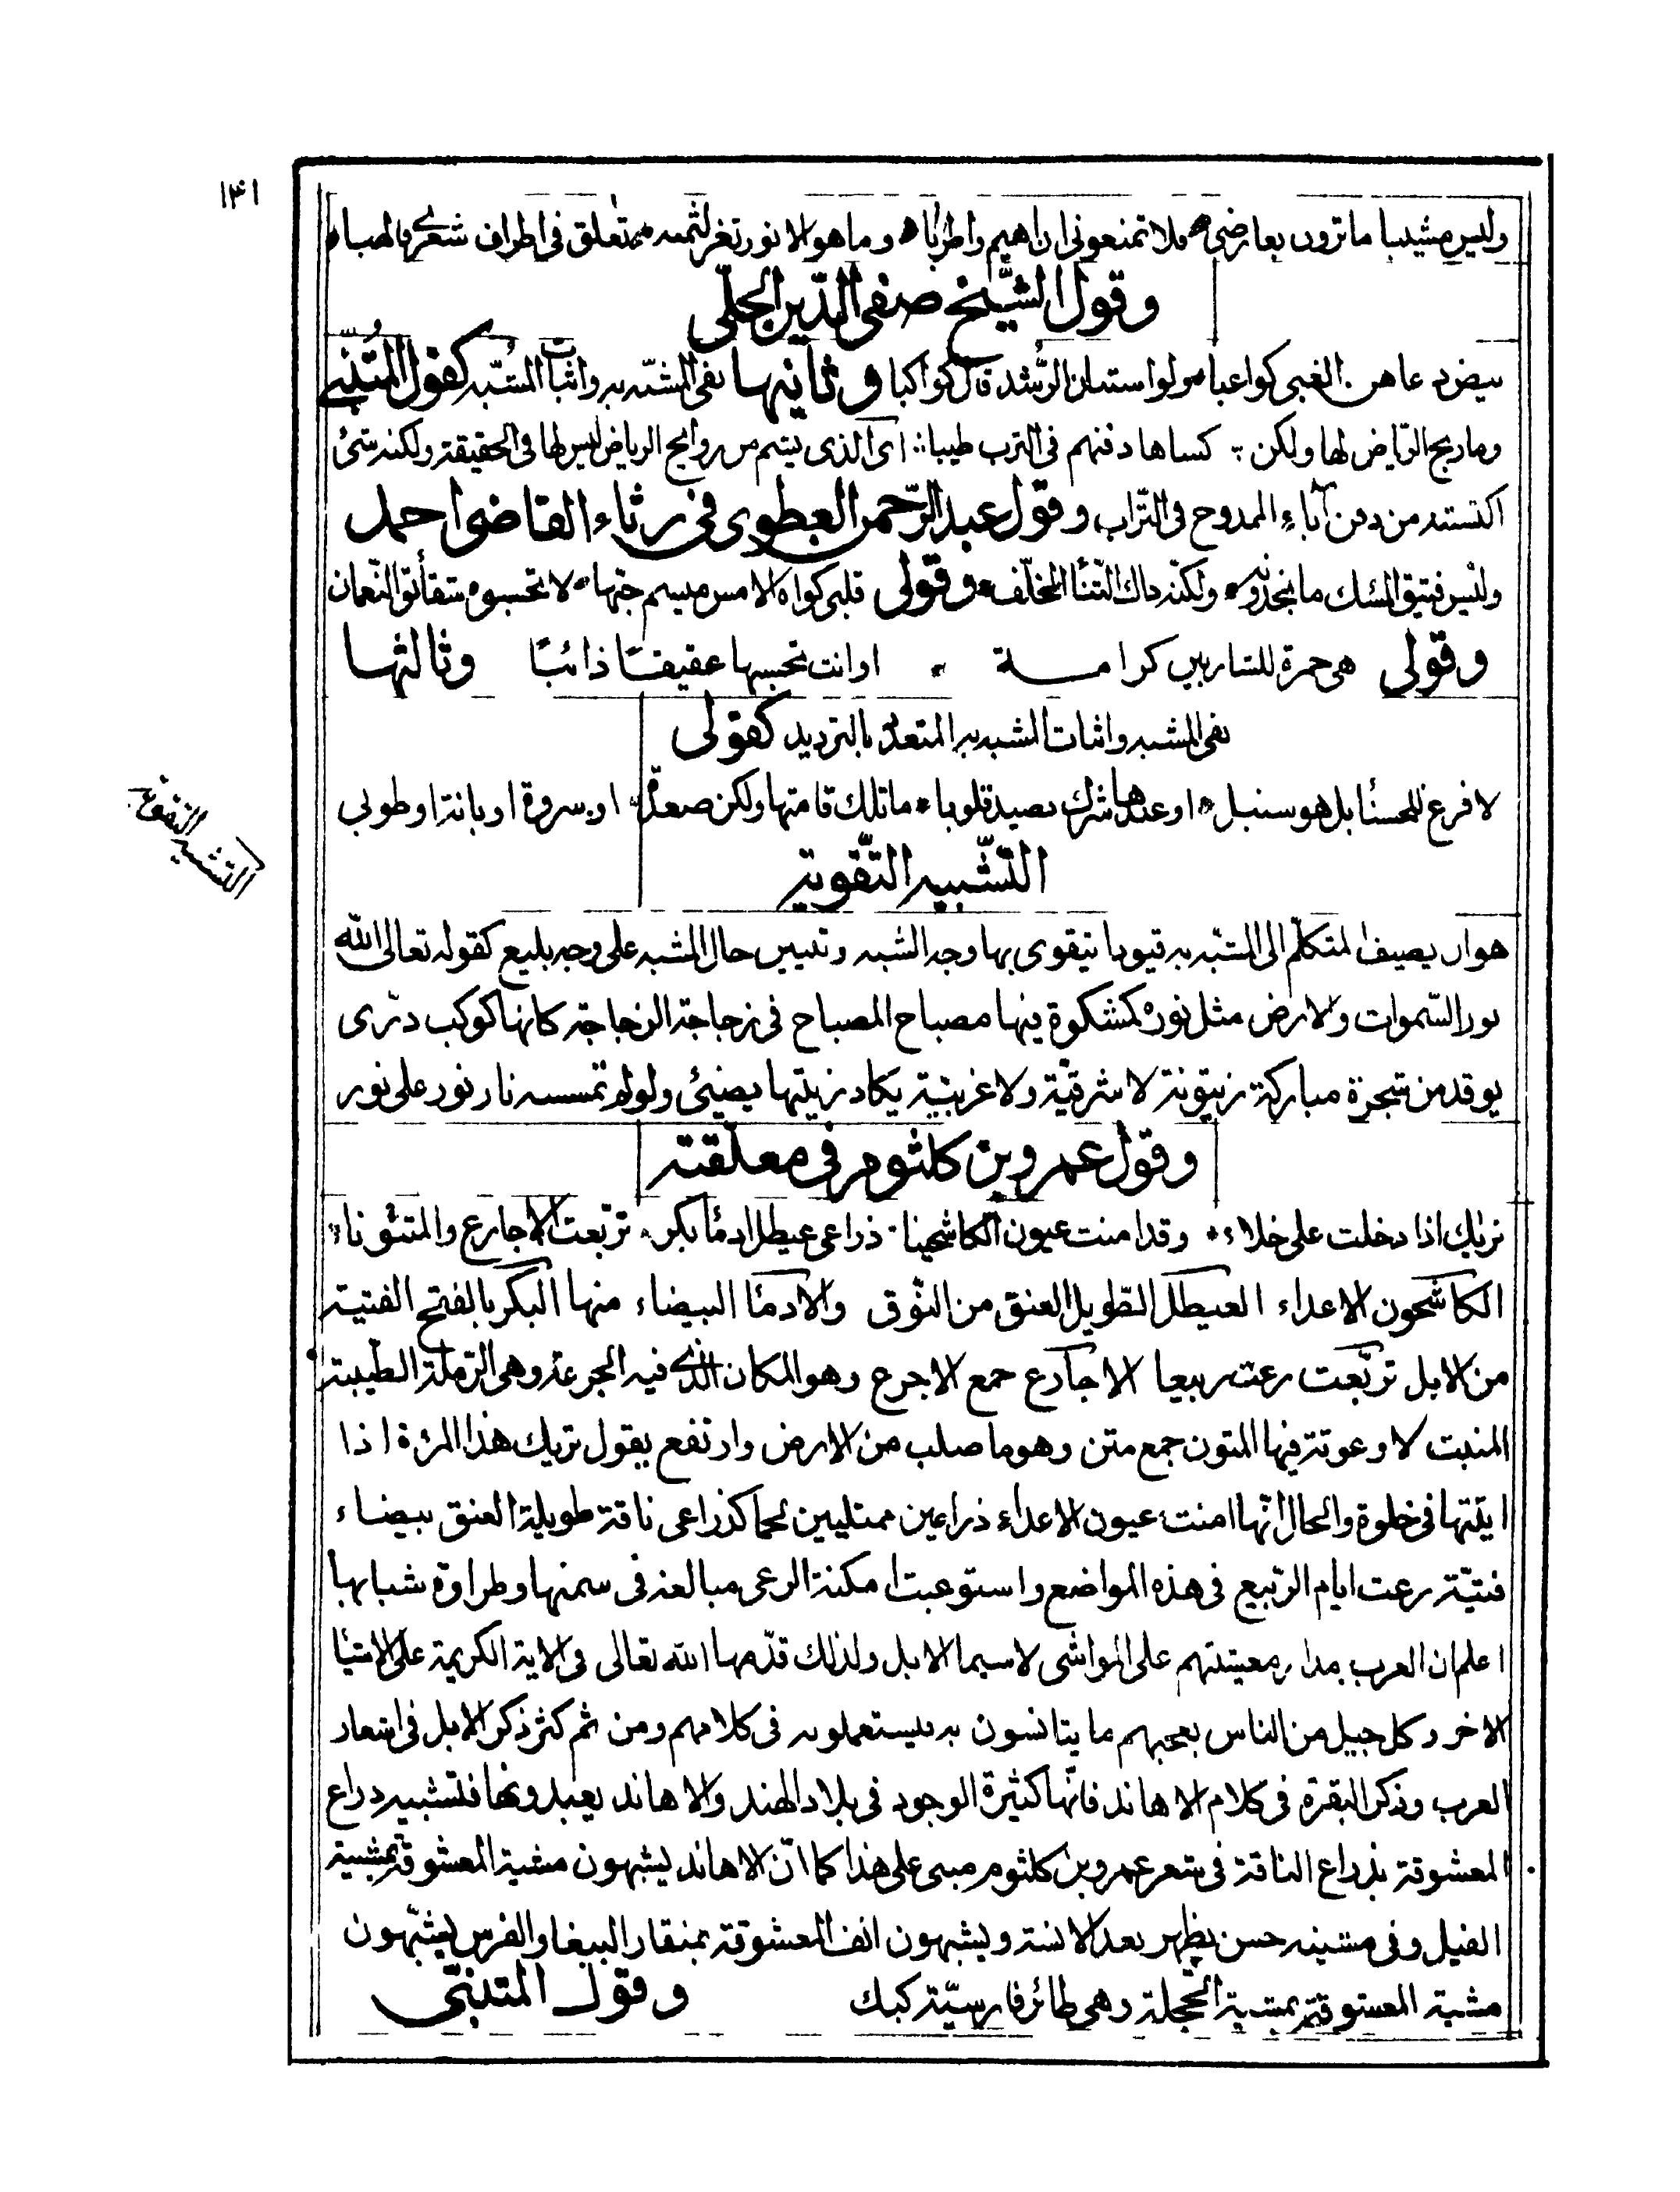 ١٣١
وليس مشيبا ما ترون بعارضي فلا تمنعوني ان اهيم واطربا وما هو الا نور ثغر لثمته تعلق في اطراف شعري فالهبا
وقول الشّيخ صفي الدّين الحلّي
بيض دعاهن الغبي كواعبا ولو استبان الرّشد قال كواكبا وثانيها نفي المشبّه به واثبات المشبّه كقول المتنبّي
وما ريح الرّياض لها ولكن كساها دفنهم في الترب طيبا اى الذى يشم من روايح الرياض ليس لها في الحقيقة ولكنه شئ
اكتسبته من دفن آباء الممدوح في التّراب وقول عبد الرّحمن العطوى في رثاء القاضى احمد
وليس فتيق المسك ما تجدونه ولكنّه ذاك الثّنأ المخلّف وقولى قلبى كواه الا مس ميسم حبّها لا تحسبوه شقأئق النّعمان
وقولى هى خمرة للشاربين كرامة او انت تحسبها عقيقًا ذائبًا وثالثها
نفى المشبه واثبات المشبه به المتعدّد بالترديد كقولى
لا فرع للحسنأ بل هو سنبل او عندها شرك يصيد قلوبا ما تلك قامتها ولكن صعدة او سروة او بانة او طوبى
التّشبيه التّقوية
التشبيه التقوية
هو ان يضيف المتكلّم الى المشبّه به قيودا يتقوى بها وجه الشبه وتبيين حال المشبه على وجه بليغ كقوله تعالى الله
نور السّموات والارض مثل نوره كمشكوة فيها مصباح المصباح في زجاجة الزجاجة كانها كوكب درّى
يوقد من شجرة مباركة زيتونة لا شرقيّة ولا غربيّة يكاد زيتها يضيئ ولو لم تمسسه نار نور على نور
وقول عمرو بن كلثوم في معلّقته
تريك اذا دخلت على خلاء وقد امنت عيون الكاشحينا ذراعى عيطل ادمأ بكر تربّعت الاجارع والمتونا
الكاشحون الاعداء العيطل الطويل العنق من النّوق والادمأ البيضاء منها البكر بالفتح الفتية
من الابل تربّعت رعت ربيعا الاجارع جمع الاجرع وهو المكان الذى فيه الجرعة وهى الرّملة الطّيبة
المنبت لا وعوثة فيها المتون جمع متن وهو ما صلب من الارض وارتفع يقول تريك هذا المرءة اذا
ايتتها في خلوة والحال انّها امنت عيون الاعداء ذراعين ممتليين لحما كذراعى ناقة طويلة العنق بيضاء
فتيّة رعت ايام الرّبيع في هذه المواضع واستوعبت امكنة الرعى مبالغة في سمنها وطراوة شبابها
اعلم ان العرب مدار معيشتهم على المواشى لا سيما الابل ولذلك قدّمها الله تعالى في الاية الكريمة على الاشيأ
الاخر وكل جيل من الناس يعجبهم ما يتانسون به يستعملونه في كلامهم ومن ثم كثر ذكر الابل في اشعار
العرب وذكر البقرة في كلام الاهاند فانّها كثيرة الوجود في بلاد الهند والاهاند يعبدونها فتشبيه ذراع
المعشوقة بذراع الناقة في شعر عمرو بن كلثوم مبنى على هذا كما انّ الاهاند يشبهون مشية المعشوقة بمشية
الفيل وفي مشيته حسن يظهر بعد الانسة ويشبهون انف المعشوقة بمنقار الببغا والفرس يشبّهون
مشية المعشوقة بمشية الحجلة وهى طائر فارسيّته كبك وقول المتنبّى